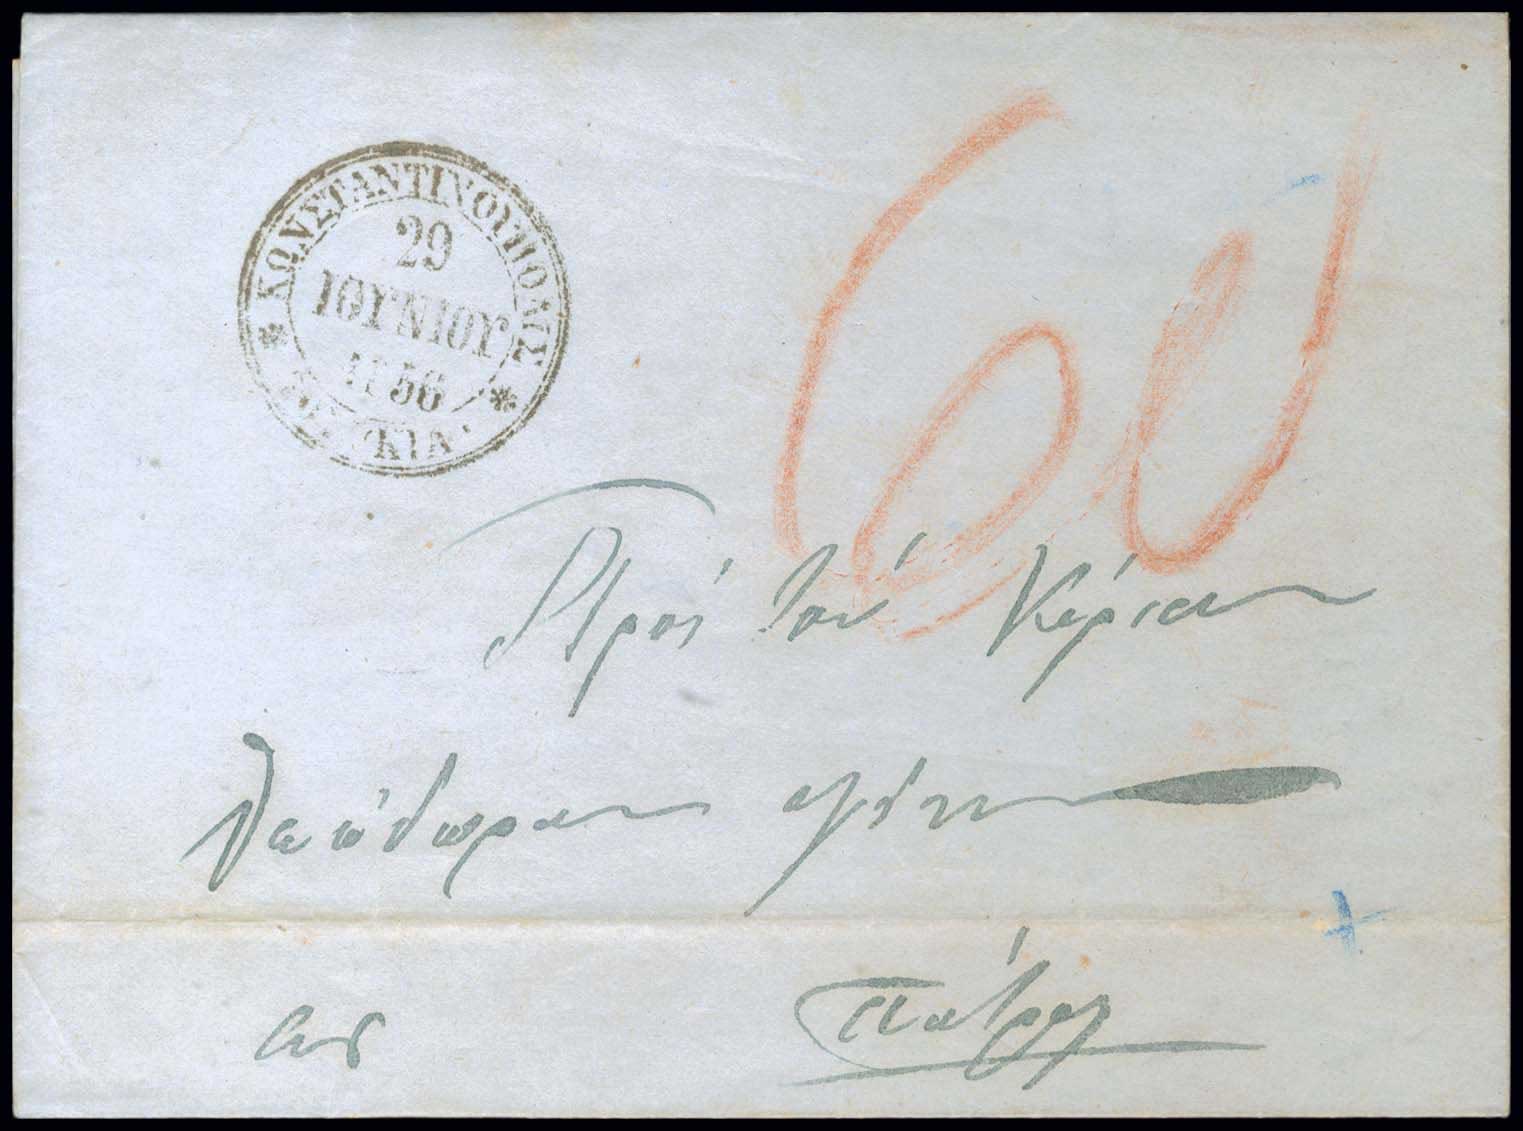 ΚΩΝΣΤΑΝΤΙΝΟΥΠΟΛΙΣ
29
ΙΟΥΝΙΟΥ
1856
60
Πρός τόν Κύριον
Θεόδωρον
εις Πάτρας